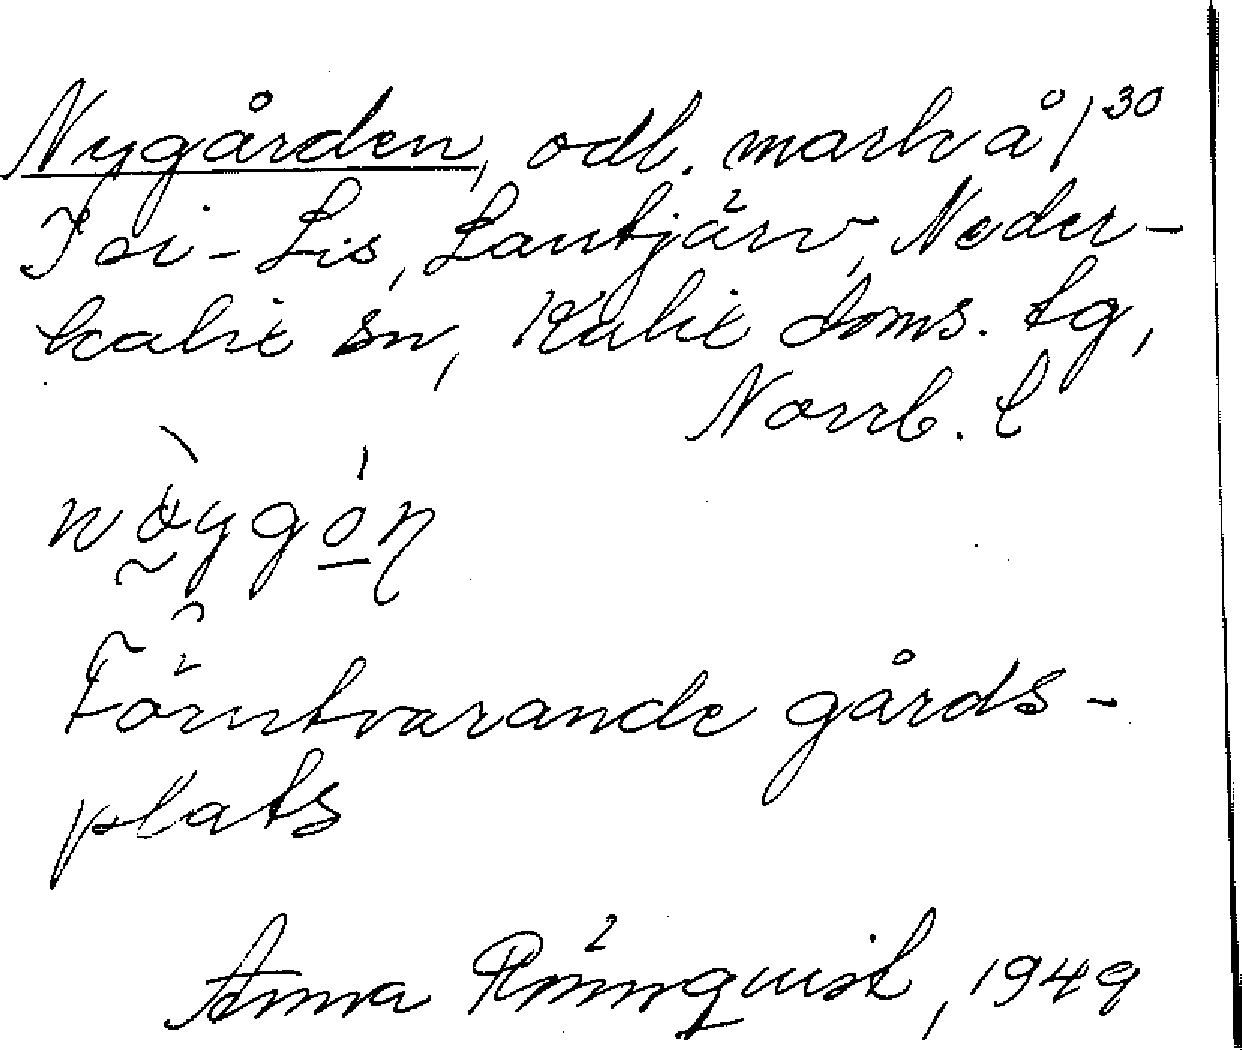 Nygården, odl. mark å 1³⁰
Per-Lis, Lantjärv, Neder-
kalix sn, Kalix doms. tg,
Norrb. l
Förutvarande gårds-
plats
Anna Rönnquist, 1949